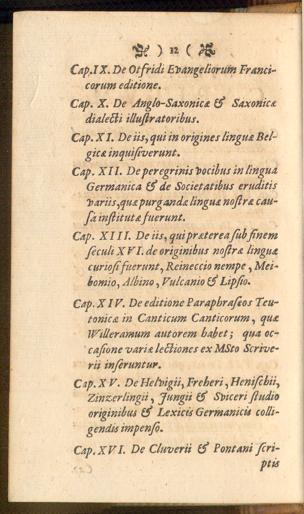 ) 12 (
Cap. IX. De Otfridi Evangeliorum Franci-
corum editione.
Cap. X. De Anglo-Saxonicæ & Saxonicæ
dialecti illuſtratoribus.
Cap. XI. De iis, qui in origines linguæ Bel-
gicæ inquiſiverunt.
Cap. XII. De peregrinis vocibus in lingua
Germanica & de Societatibus eruditis
variis, quæ purgandæ linguæ noſtræ cau-
ſa inſtitutæ fuerunt.
Cap. XIII. De iis, qui præterea ſub finem
ſeculi XVI. de originibus noſtræ linguæ
curioſi fuerunt, Reineccio nempe, Mei-
bomio, Albino, Vulcanio & Lipſio.
Cap. XIV. De editione Paraphraſeos Teu-
tonicæ in Canticum Canticorum, quæ
Willeramum autorem habet; qua oc-
caſione variæ lectiones ex MSto Scrive-
rii inſeruntur.
Cap. XV. De Helvigii, Freheri, Heniſchii,
Zinzerlingii, Jungii & Sviceri ſtudio
originibus & Lexicis Germanicis colli-
gendis impenſo.
Cap. XVI. De Cluverii & Pontani ſcri-
ptis